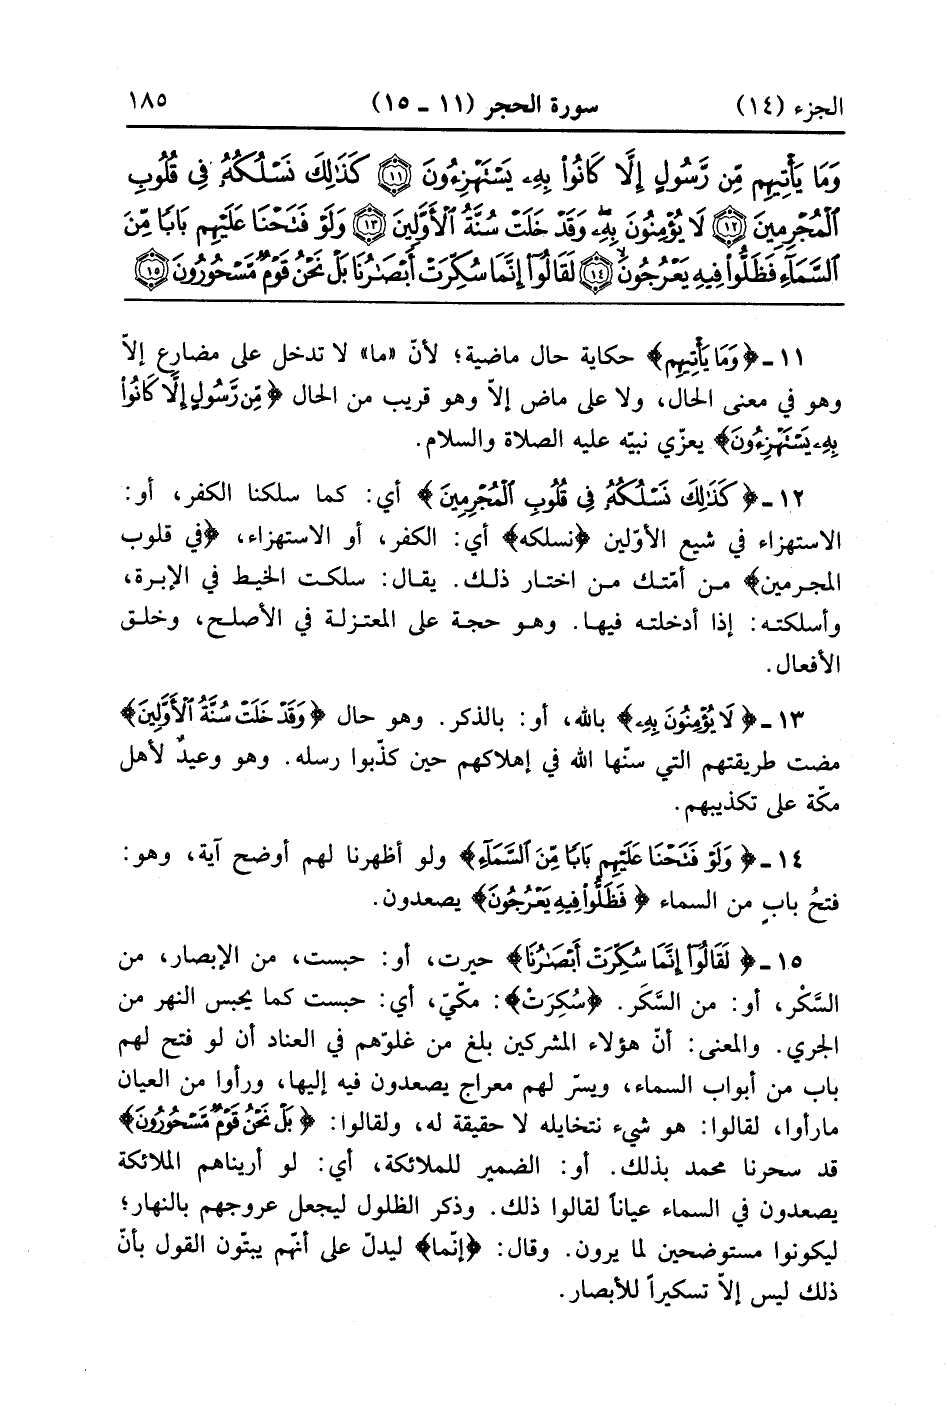 الجزء (١٤) سورة الحجر (١١ ـ ١٥) ١٨٥
وَمَا يَأْتِيهِم مِّن رَّسُولٍ إِلَّا كَانُوا۟ بِهِۦ يَسْتَهْزِءُونَ ﴿١١﴾ كَذَٰلِكَ نَسْلُكُهُۥ فِى قُلُوبِ
ٱلْمُجْرِمِينَ ﴿١٢﴾ لَا يُؤْمِنُونَ بِهِۦ ۖ وَقَدْ خَلَتْ سُنَّةُ ٱلْأَوَّلِينَ ﴿١٣﴾ وَلَوْ فَتَحْنَا عَلَيْهِم بَابًا مِّنَ
ٱلسَّمَآءِ فَظَلُّوا۟ فِيهِ يَعْرُجُونَ ﴿١٤﴾ لَقَالُوٓا۟ إِنَّمَا سُكِّرَتْ أَبْصَٰرُنَا بَلْ نَحْنُ قَوْمٌ مَّسْحُورُونَ ﴿١٥﴾
١١ ـ ﴿وَمَا يَأْتِيهِم﴾ حكاية حال ماضية؛ لأنّ «ما» لا تدخل على مضارع إلاّ
وهو في معنى الحال، ولا على ماض إلاّ وهو قريب من الحال ﴿مِّن رَّسُولٍ إِلَّا كَانُوا۟
بِهِۦ يَسْتَهْزِءُونَ﴾ يعزّي نبيّه عليه الصلاة والسلام.
١٢ ـ ﴿كَذَٰلِكَ نَسْلُكُهُۥ فِى قُلُوبِ ٱلْمُجْرِمِينَ﴾ أي: كما سلكنا الكفر، أو:
الاستهزاء في شيع الأوّلين ﴿نسلكه﴾ أي: الكفر، أو الاستهزاء، ﴿في قلوب
المجرمين﴾ من أمّتك من اختار ذلك. يقال: سلكت الخيط في الإبرة،
وأسلكته: إذا أدخلته فيها. وهو حجة على المعتزلة في الأصلح، وخلق
الأفعال.
١٣ ـ ﴿لَا يُؤْمِنُونَ بِهِۦ﴾ بالله، أو: بالذكر. وهو حال ﴿وَقَدْ خَلَتْ سُنَّةُ ٱلْأَوَّلِينَ﴾
مضت طريقتهم التي سنّها الله في إهلاكهم حين كذّبوا رسله. وهو وعيدٌ لأهل
مكّة على تكذيبهم.
١٤ ـ ﴿وَلَوْ فَتَحْنَا عَلَيْهِم بَابًا مِّنَ ٱلسَّمَآءِ﴾ ولو أظهرنا لهم أوضح آية، وهو:
فتحُ بابٍ من السماء ﴿فَظَلُّوا۟ فِيهِ يَعْرُجُونَ﴾ يصعدون.
١٥ ـ ﴿لَقَالُوٓا۟ إِنَّمَا سُكِّرَتْ أَبْصَٰرُنَا﴾ حيرت، أو: حبست، من الإبصار، من
السَّكْر، أو: من السَّكَر. ﴿سُكِرَتْ﴾: مكّيّ، أي: حبست كما يحبس النهر من
الجري. والمعنى: أنّ هؤلاء المشركين بلغ من غلوّهم في العناد أن لو فتح لهم
باب من أبواب السماء، ويسّر لهم معراج يصعدون فيه إليها، ورأوا من العيان
مارأوا، لقالوا: هو شيء نتخايله لا حقيقة له، ولقالوا: ﴿بَلْ نَحْنُ قَوْمٌ مَّسْحُورُونَ﴾
قد سحرنا محمد بذلك. أو: الضمير للملائكة، أي: لو أريناهم الملائكة
يصعدون في السماء عياناً لقالوا ذلك. وذكر الظلول ليجعل عروجهم بالنهار؛
ليكونوا مستوضحين لما يرون. وقال: ﴿إنّما﴾ ليدلّ على أنّهم يبتّون القول بأنّ
ذلك ليس إلاّ تسكيراً للأبصار.